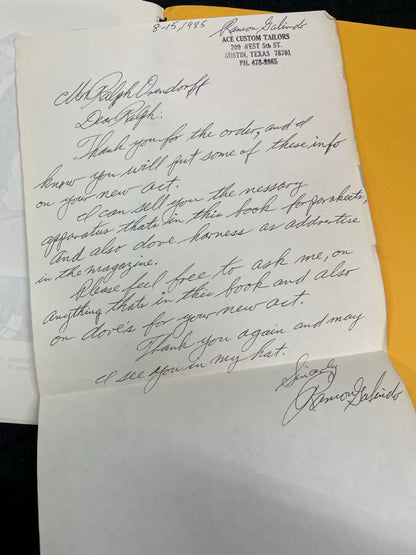 8-15/1985
Ramon Galindo
ACE CUSTOM TAILORS
209 WEST 5th ST.
AUSTIN, TEXAS 78701
PH. 478-9965
Mr Ralph Osendorff
Dear Ralph:
Thank you for the order, and I
know you will put some of these info
on your new act.
I can sell you the nessary
apparatus thats in this book for parakeets,
and also dove harness as addvertise
in the magazine.
Please feel free to ask me, on
anything thats in this book and also
on dove's for your new act.
Thank you again and may
I see you in my hat.
Sincerly
Ramon Galindo